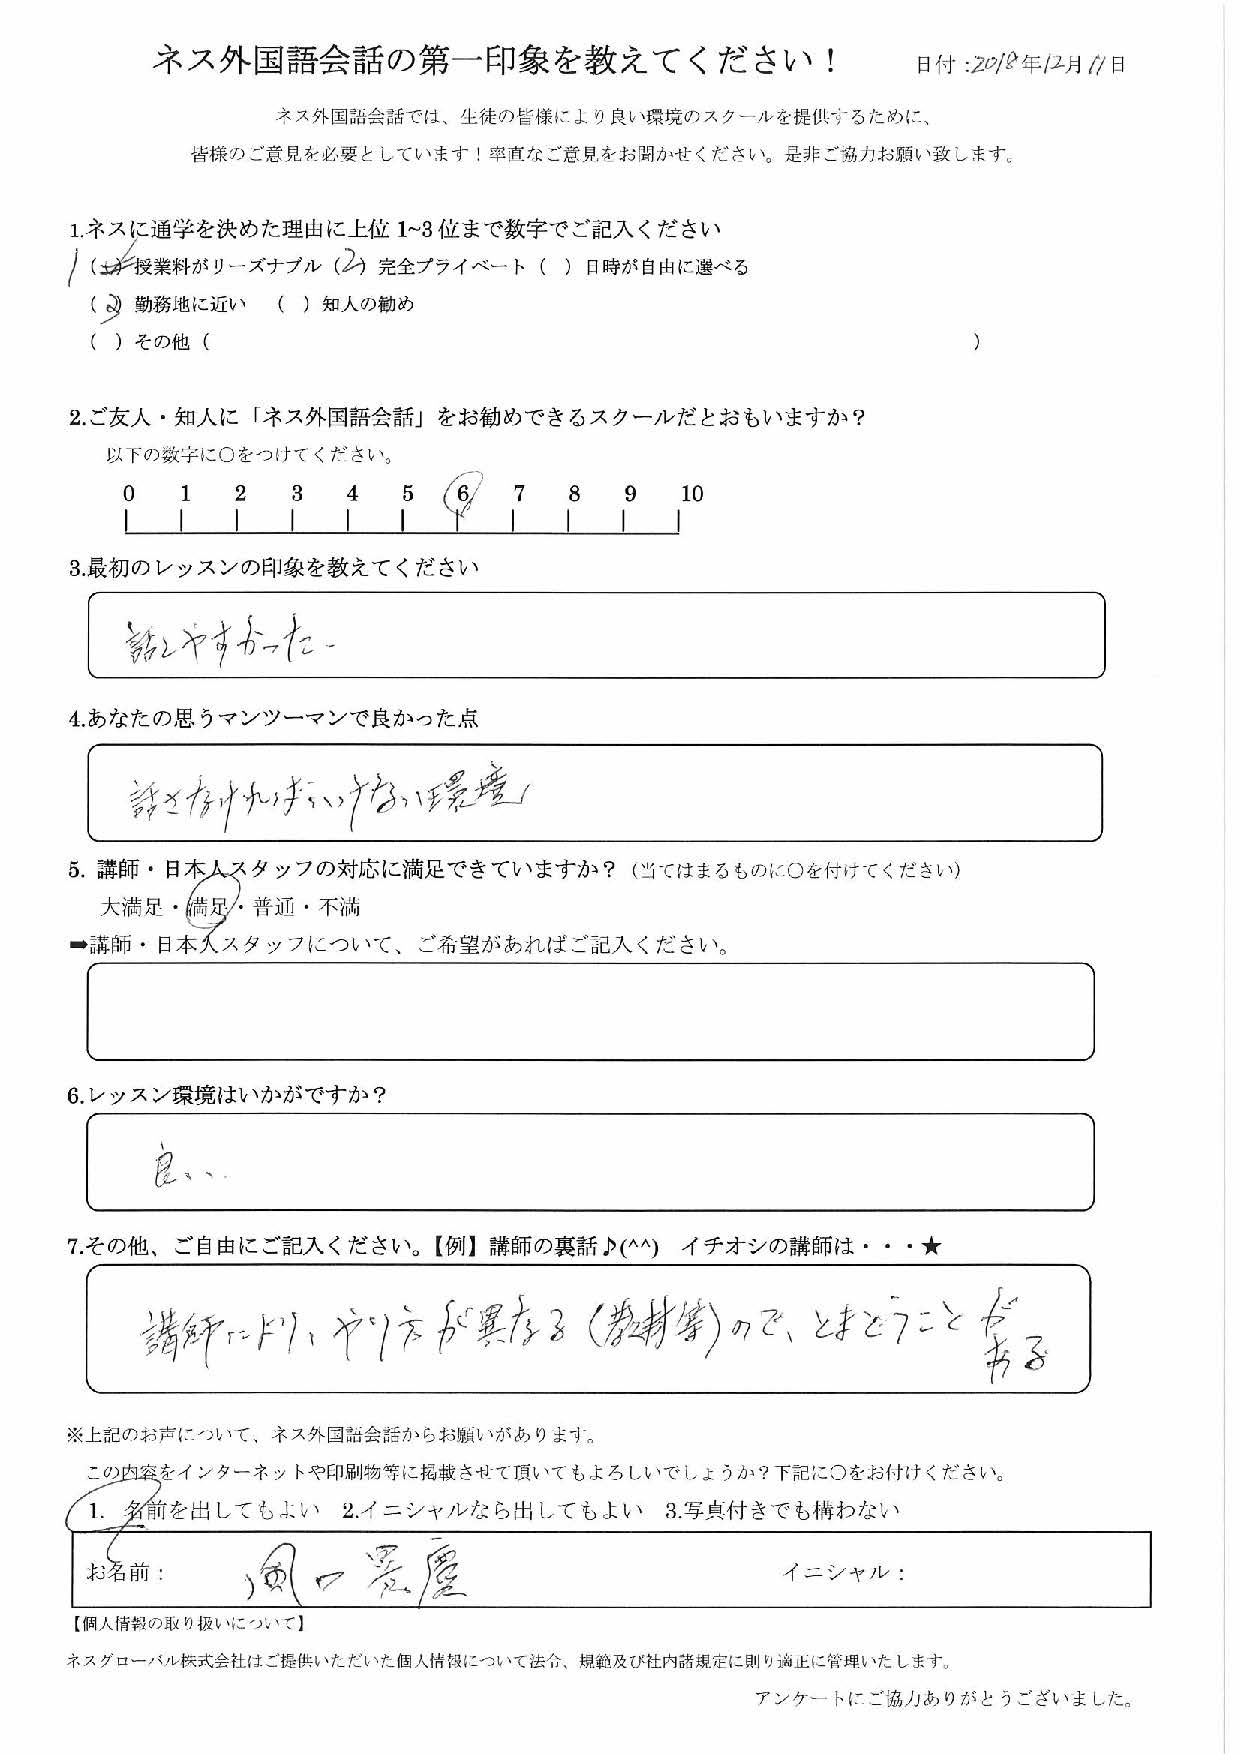 ネス外国語会話の第一印象を教えてください！ 日付：2018年12月11日
ネス外国語会話では、生徒の皆様により良い環境のスクールを提供するために、
皆様のご意見を必要としています！率直なご意見をお聞かせください。是非ご協力お願い致します。
1.ネスに通学を決めた理由に上位1~3位まで数字でご記入ください
1（ ）授業料がリーズナブル（2）完全プライベート（ ）日時が自由に選べる
（3）勤務地に近い （ ）知人の勧め
（ ）その他（ ）
2.ご友人・知人に「ネス外国語会話」をお勧めできるスクールだとおもいますか？
以下の数字に○をつけてください。
0 1 2 3 4 5 6 7 8 9 10
3.最初のレッスンの印象を教えてください
話しやすかった。
4.あなたの思うマンツーマンで良かった点
話さなければいけない環境
5. 講師・日本人スタッフの対応に満足できていますか？（当てはまるものに○を付けてください）
大満足・満足・普通・不満
➡講師・日本人スタッフについて、ご希望があればご記入ください。
6.レッスン環境はいかがですか？
良い。
7.その他、ご自由にご記入ください。【例】講師の裏話♪(^^) イチオシの講師は・・・★
講師により、やり方が異なる（教材等）ので、とまどうことが
ある
※上記のお声について、ネス外国語会話からお願いがあります。
この内容をインターネットや印刷物等に掲載させて頂いてもよろしいでしょうか？下記に○をお付けください。
1. 名前を出してもよい 2.イニシャルなら出してもよい 3.写真付きでも構わない
お名前： イニシャル：
【個人情報の取り扱いについて】
ネスグローバル株式会社はご提供いただいた個人情報について法令、規範及び社内諸規定に則り適正に管理いたします。
アンケートにご協力ありがとうございました。